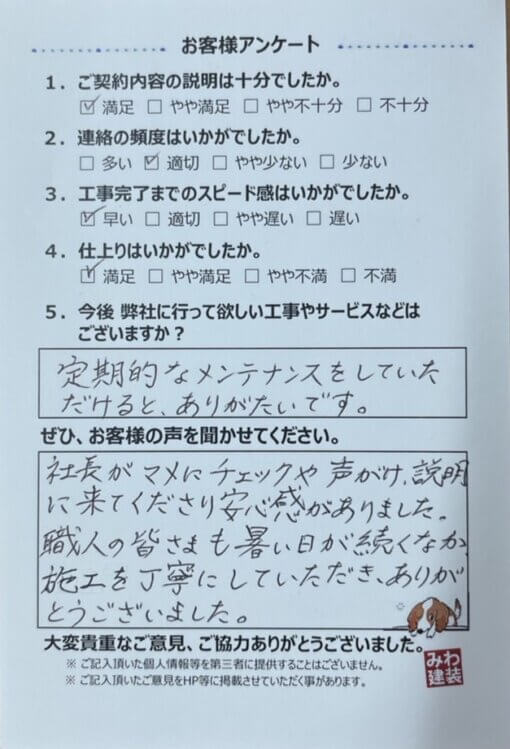 お客様アンケート
1．ご契約内容の説明は十分でしたか。
☑ 満足 □ やや満足 □ やや不十分 □ 不十分
2．連絡の頻度はいかがでしたか。
□ 多い ☑ 適切 □ やや少ない □ 少ない
3．工事完了までのスピード感はいかがでしたか。
☑ 早い □ 適切 □ やや遅い □ 遅い
4．仕上りはいかがでしたか。
☑ 満足 □ やや満足 □ やや不満 □ 不満
5．今後 弊社に行って欲しい工事やサービスなどは
ございますか？
定期的なメンテナンスをしていた
だけると、ありがたいです。
ぜひ、お客様の声を聞かせてください。
社長がマメにチェックや声がけ、説明
に来てくださり安心感がありました。
職人の皆さまも暑い日が続くなか、
施工を丁寧にしていただき、ありが
とうございました。
大変貴重なご意見、ご協力ありがとうございました。
※ ご記入頂いた個人情報等を第三者に提供することはございません。
※ ご記入頂いたご意見をHP等に掲載させていただく事があります。
みわ
建装